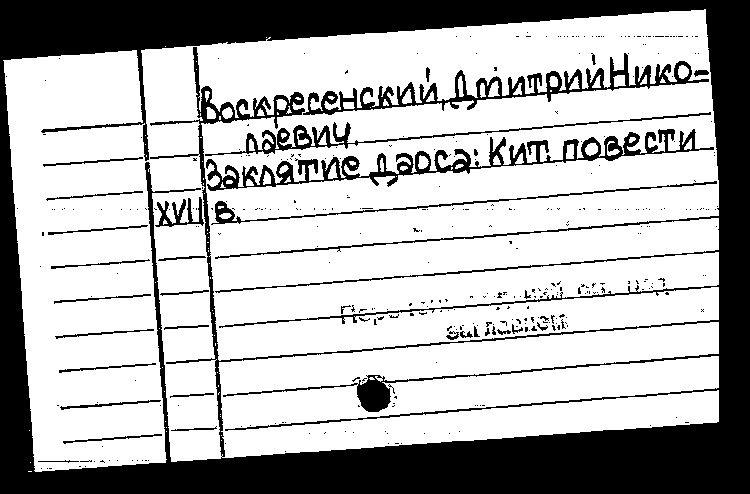 Воскресенский, Дмитрий Нико=
лаевич.
Заклятие даоса: Кит. повести
XVII в.
заглавием